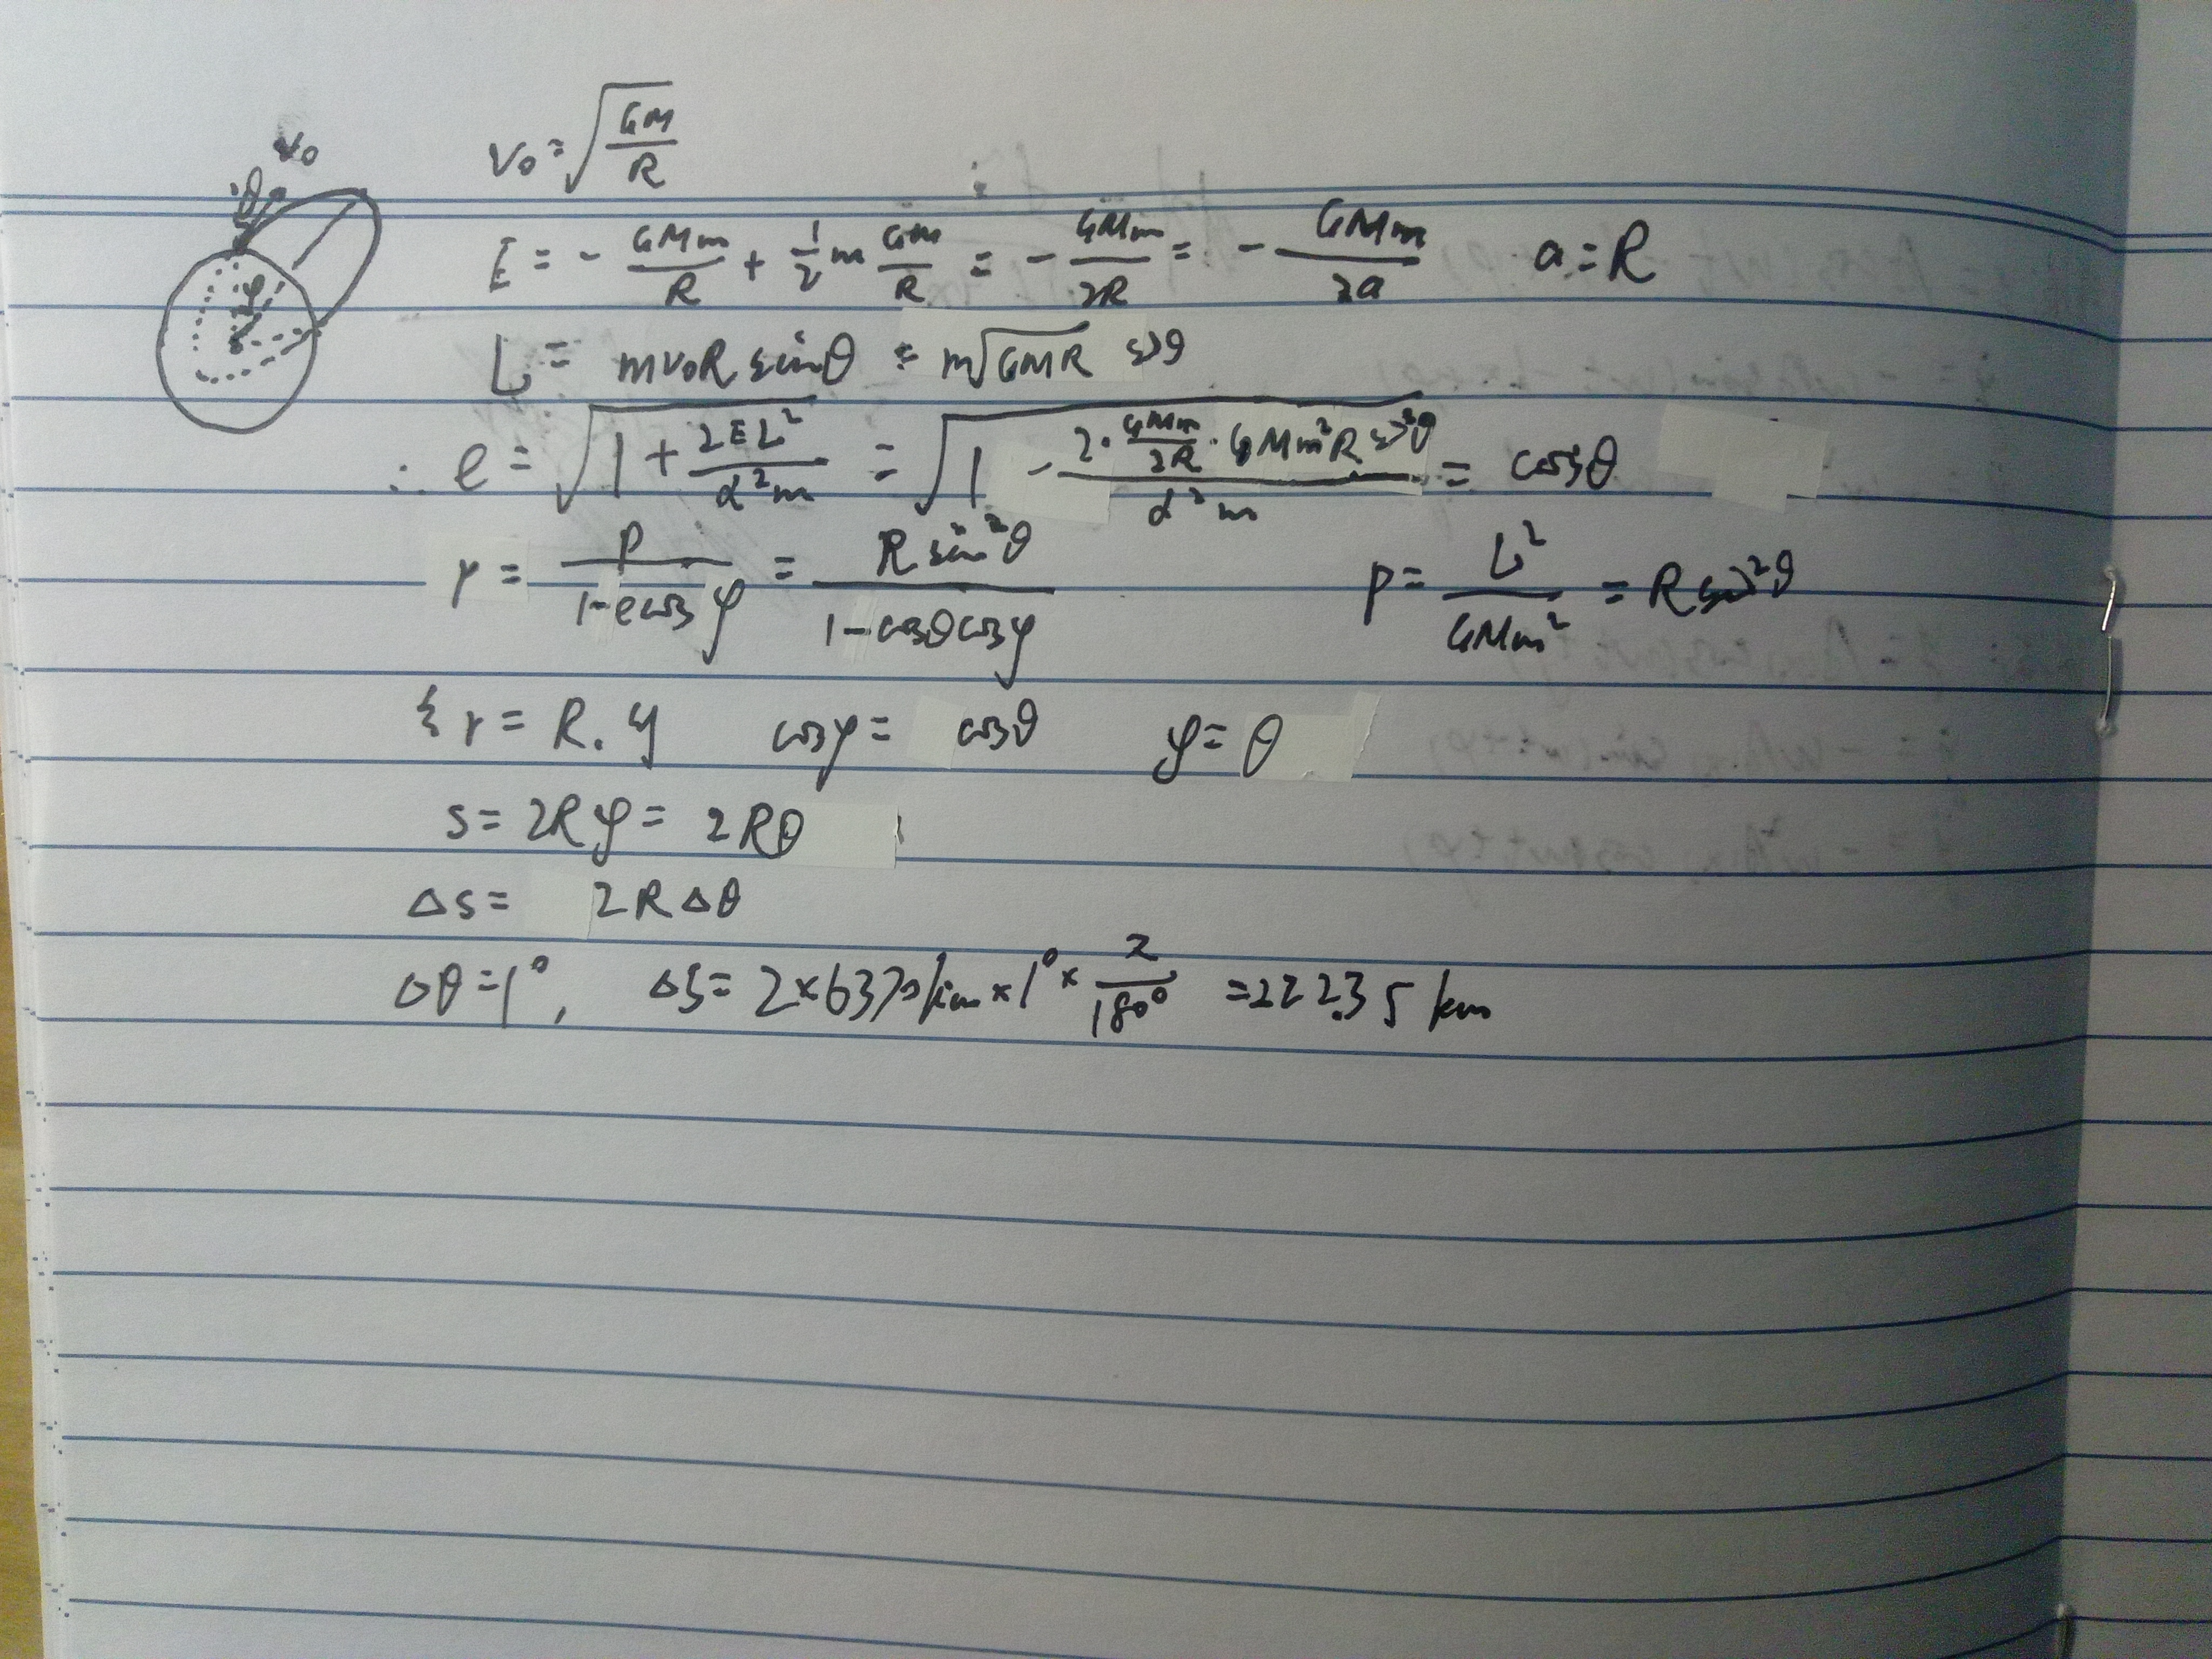 v₀ θ φ
v₀ = √(GM/R)
E = - GMm/R + 1/2 m GM/R = - GMm/2R = - GMm/2a a = R
L = mv₀R sinθ = m√(GMR) sinθ
∴ e = √(1 + 2EL²/α²m) = √(1 - 2·GMm/2R·GMm²R sin²θ/α²m) = cosθ
r = p/(1-ecosφ) = R sin²θ/(1-cosθcosφ) p = L²/GMm² = R sin²θ
r = R. cosφ = cosθ φ = θ
s = 2Rφ = 2Rθ
Δs = 2RΔθ
Δθ = 1°, Δs = 2×6370km×1°×π/180° = 222.35 km